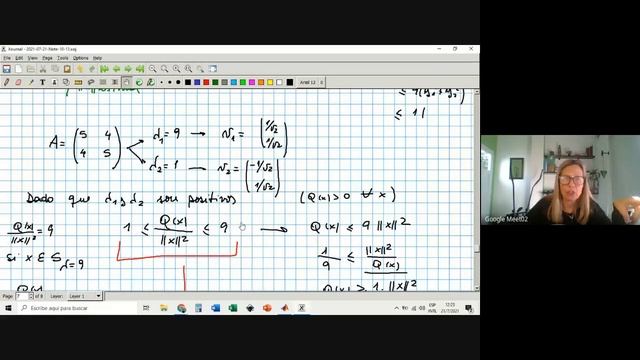 Xournal - 2021-07-21-Note-10-13.xoj
File Edit View Journal Tools Options Help
Arial 12
A = (5 4
4 5)
λ₁ = 9 → v₁ = (1/√2
1/√2)
λ₂ = 1 → v₂ = (-1/√2
1/√2)
≤ 1 |
Dado que λ₁ y λ₂ son positivos (Q(x) > 0 ∀ x)
Q(x)/||x||² = 9
1 ≤ Q(x)/||x||² ≤ 9 → Q(x) ≤ 9 ||x||²
si x ∈ S λ=9
1/9 ≤ ||x||²/Q(x)
Q(x) ≥ 1. ||x||²
Page 7 of 8 Layer: Layer 1
Escribe aquí para buscar
ESP
INTL
12:23
21/7/2021
Google Meet02